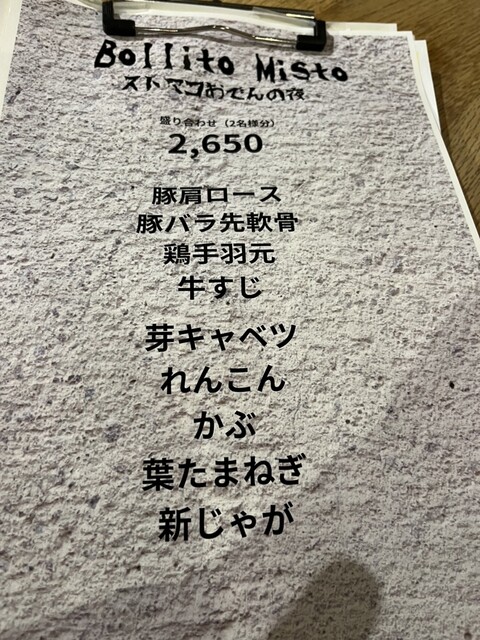 Bollito Misto
ストマコおでんの夜
盛り合わせ（2名様分）
2,650
豚肩ロース
豚バラ先軟骨
鶏手羽元
牛すじ
芽キャベツ
れんこん
かぶ
葉たまねぎ
新じゃが